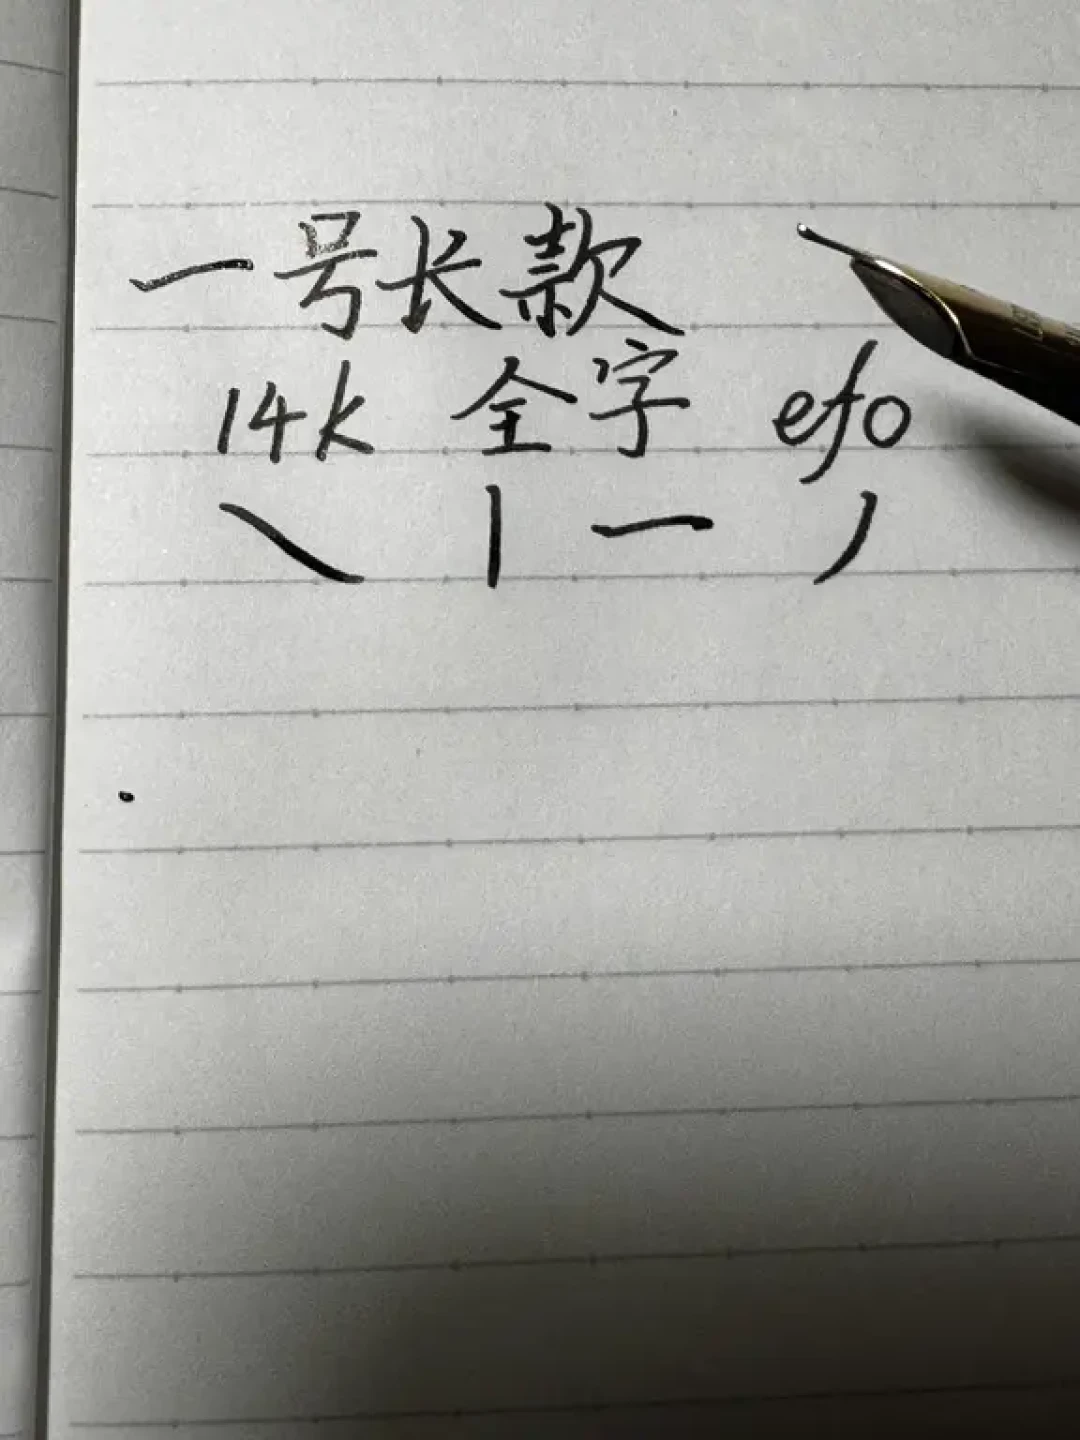 一号长款
14k 全字 efo